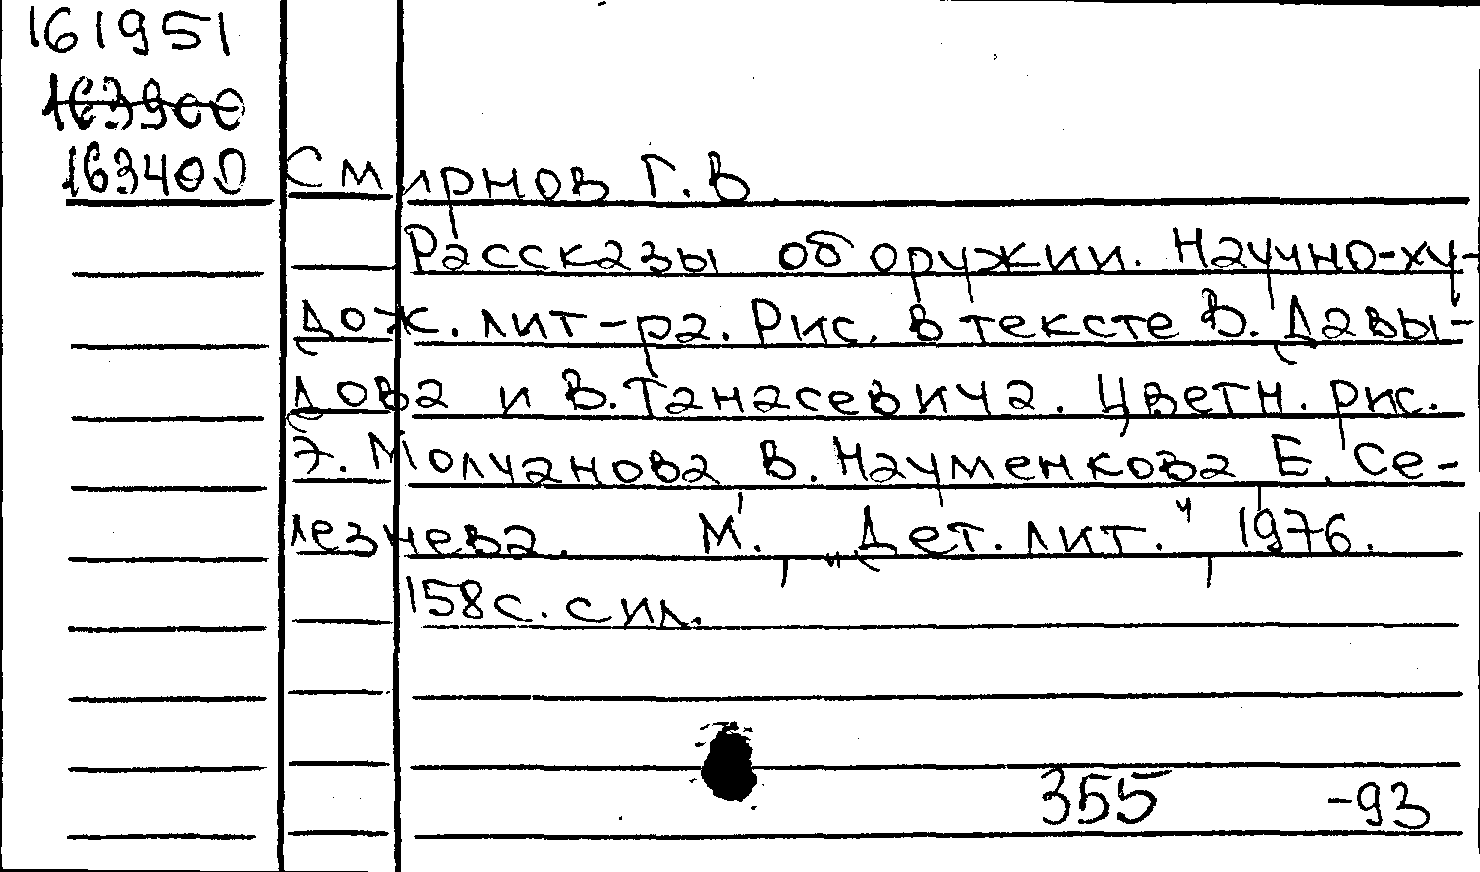 161951
163900
163400 Смирнов Г.В.
Рассказы об оружии. Научно-ху-
дож. лит-ра. Рис. в тексте В. Давы-
дова и В. Танасевича. Цветн. рис.
Э. Молчанова В. Науменкова Е. Се-
лезнева. М., „Дет. лит.", 1976.
158 с. с ил.
355 -93